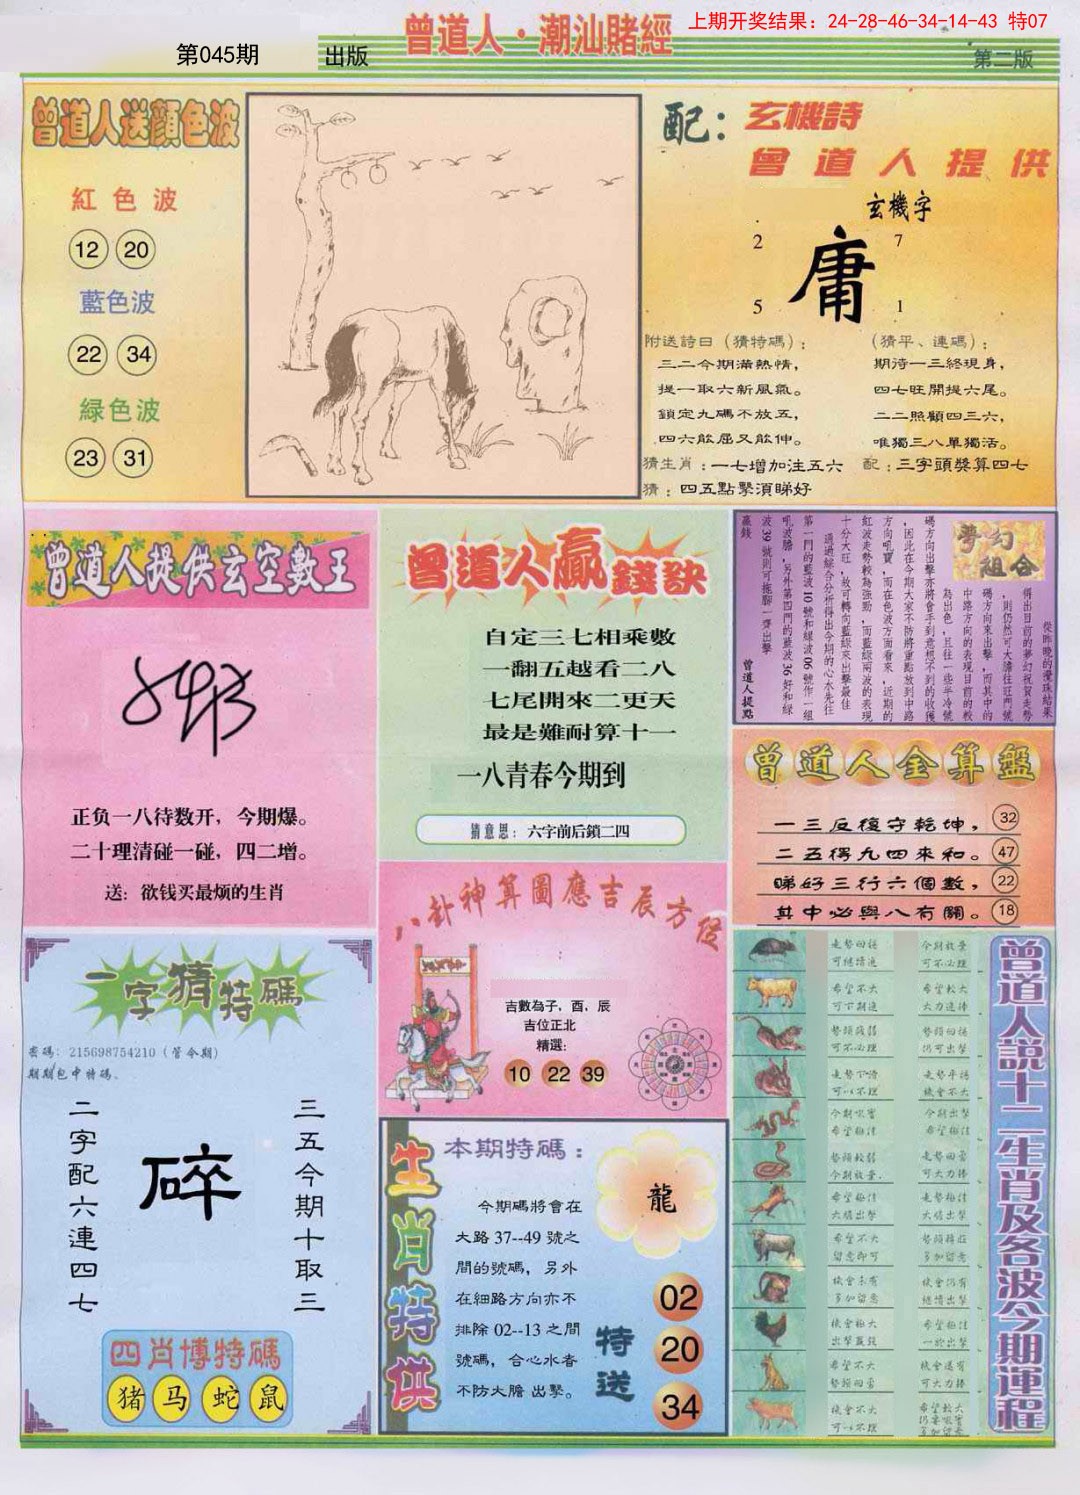 上期开奖结果：24-28-46-34-14-43 特07
曾道人·潮汕賭經
第045期
出版
第二版
曾道人送顔色波
紅色波
12 20
藍色波
22 34
緑色波
23 31
配：玄機詩
曾道人提供
玄機字
2 7
庸
5 1
附送詩曰（猜特碼）：
三二今期滿熱情，
提一取六新風氣。
鎖定九碼不放五，
四六能屈又能伸。
（猜平、連碼）：
期待一三終現身，
四七旺開提六尾。
二二照顧四三六，
唯獨三八單獨活。
猜生肖：一七增加注五六
配：三字頭獎算四七
猜：四五點擊須睇好
曾道人提供玄空數王
正负一八待数开，今期爆。
二十理清碰一碰，四二增。
送：欲钱买最烦的生肖
曾道人贏錢訣
自定三七相乘數
一翻五越看二八
七尾開來二更天
最是難耐算十一
一八青春今期到
猜意思：六字前后鎖二四
夢幻組合
從昨晚的攪珠結果
得出目前的夢幻祝賀走勢
，則仍然可大膽往旺門號
碼方向來出擊，而其中的
中路方向的表現目前的較
為出色，且往一些半冷號
碼方向出擊亦將會手到意想不到的收獲
，因此在今期大家不防將重點放到中路
方向吼實，而在色波方面看來，近期的
紅波走勢較為強勁，而藍綠兩波的表現
十分大旺，故可轉向藍綠來出擊最佳
通過綜合分析得出今期的心水先往
第一門的藍波10號和綠波06號作一組
吼波膽，另外第四門的藍波36好和綠
波39號則可拖脚一齊出擊
贏錢
曾道人提點
曾道人金算盤
一三反復守乾坤， 32
二五得九四來和。 47
睇好三行六個數， 22
其中必與八有關。 18
八卦神算圖應吉辰方位
吉數為子，酉，辰
吉位正北
精選：
10 22 39
一字猜特碼
密碼：215698754210（管令期）
期期包中特碼、
二字配六連四七
碎
三五今期十取三
四肖博特碼
猪 马 蛇 鼠
生肖特供
本期特碼：
龍
今期碼將會在
大路 37--49 號之
間的號碼，另外
在細路方向亦不
排除 02--13 之間
號碼，合心水者
不防大膽 出擊。
特送
02
20
34
曾道人說十二生肖及各波今期運程